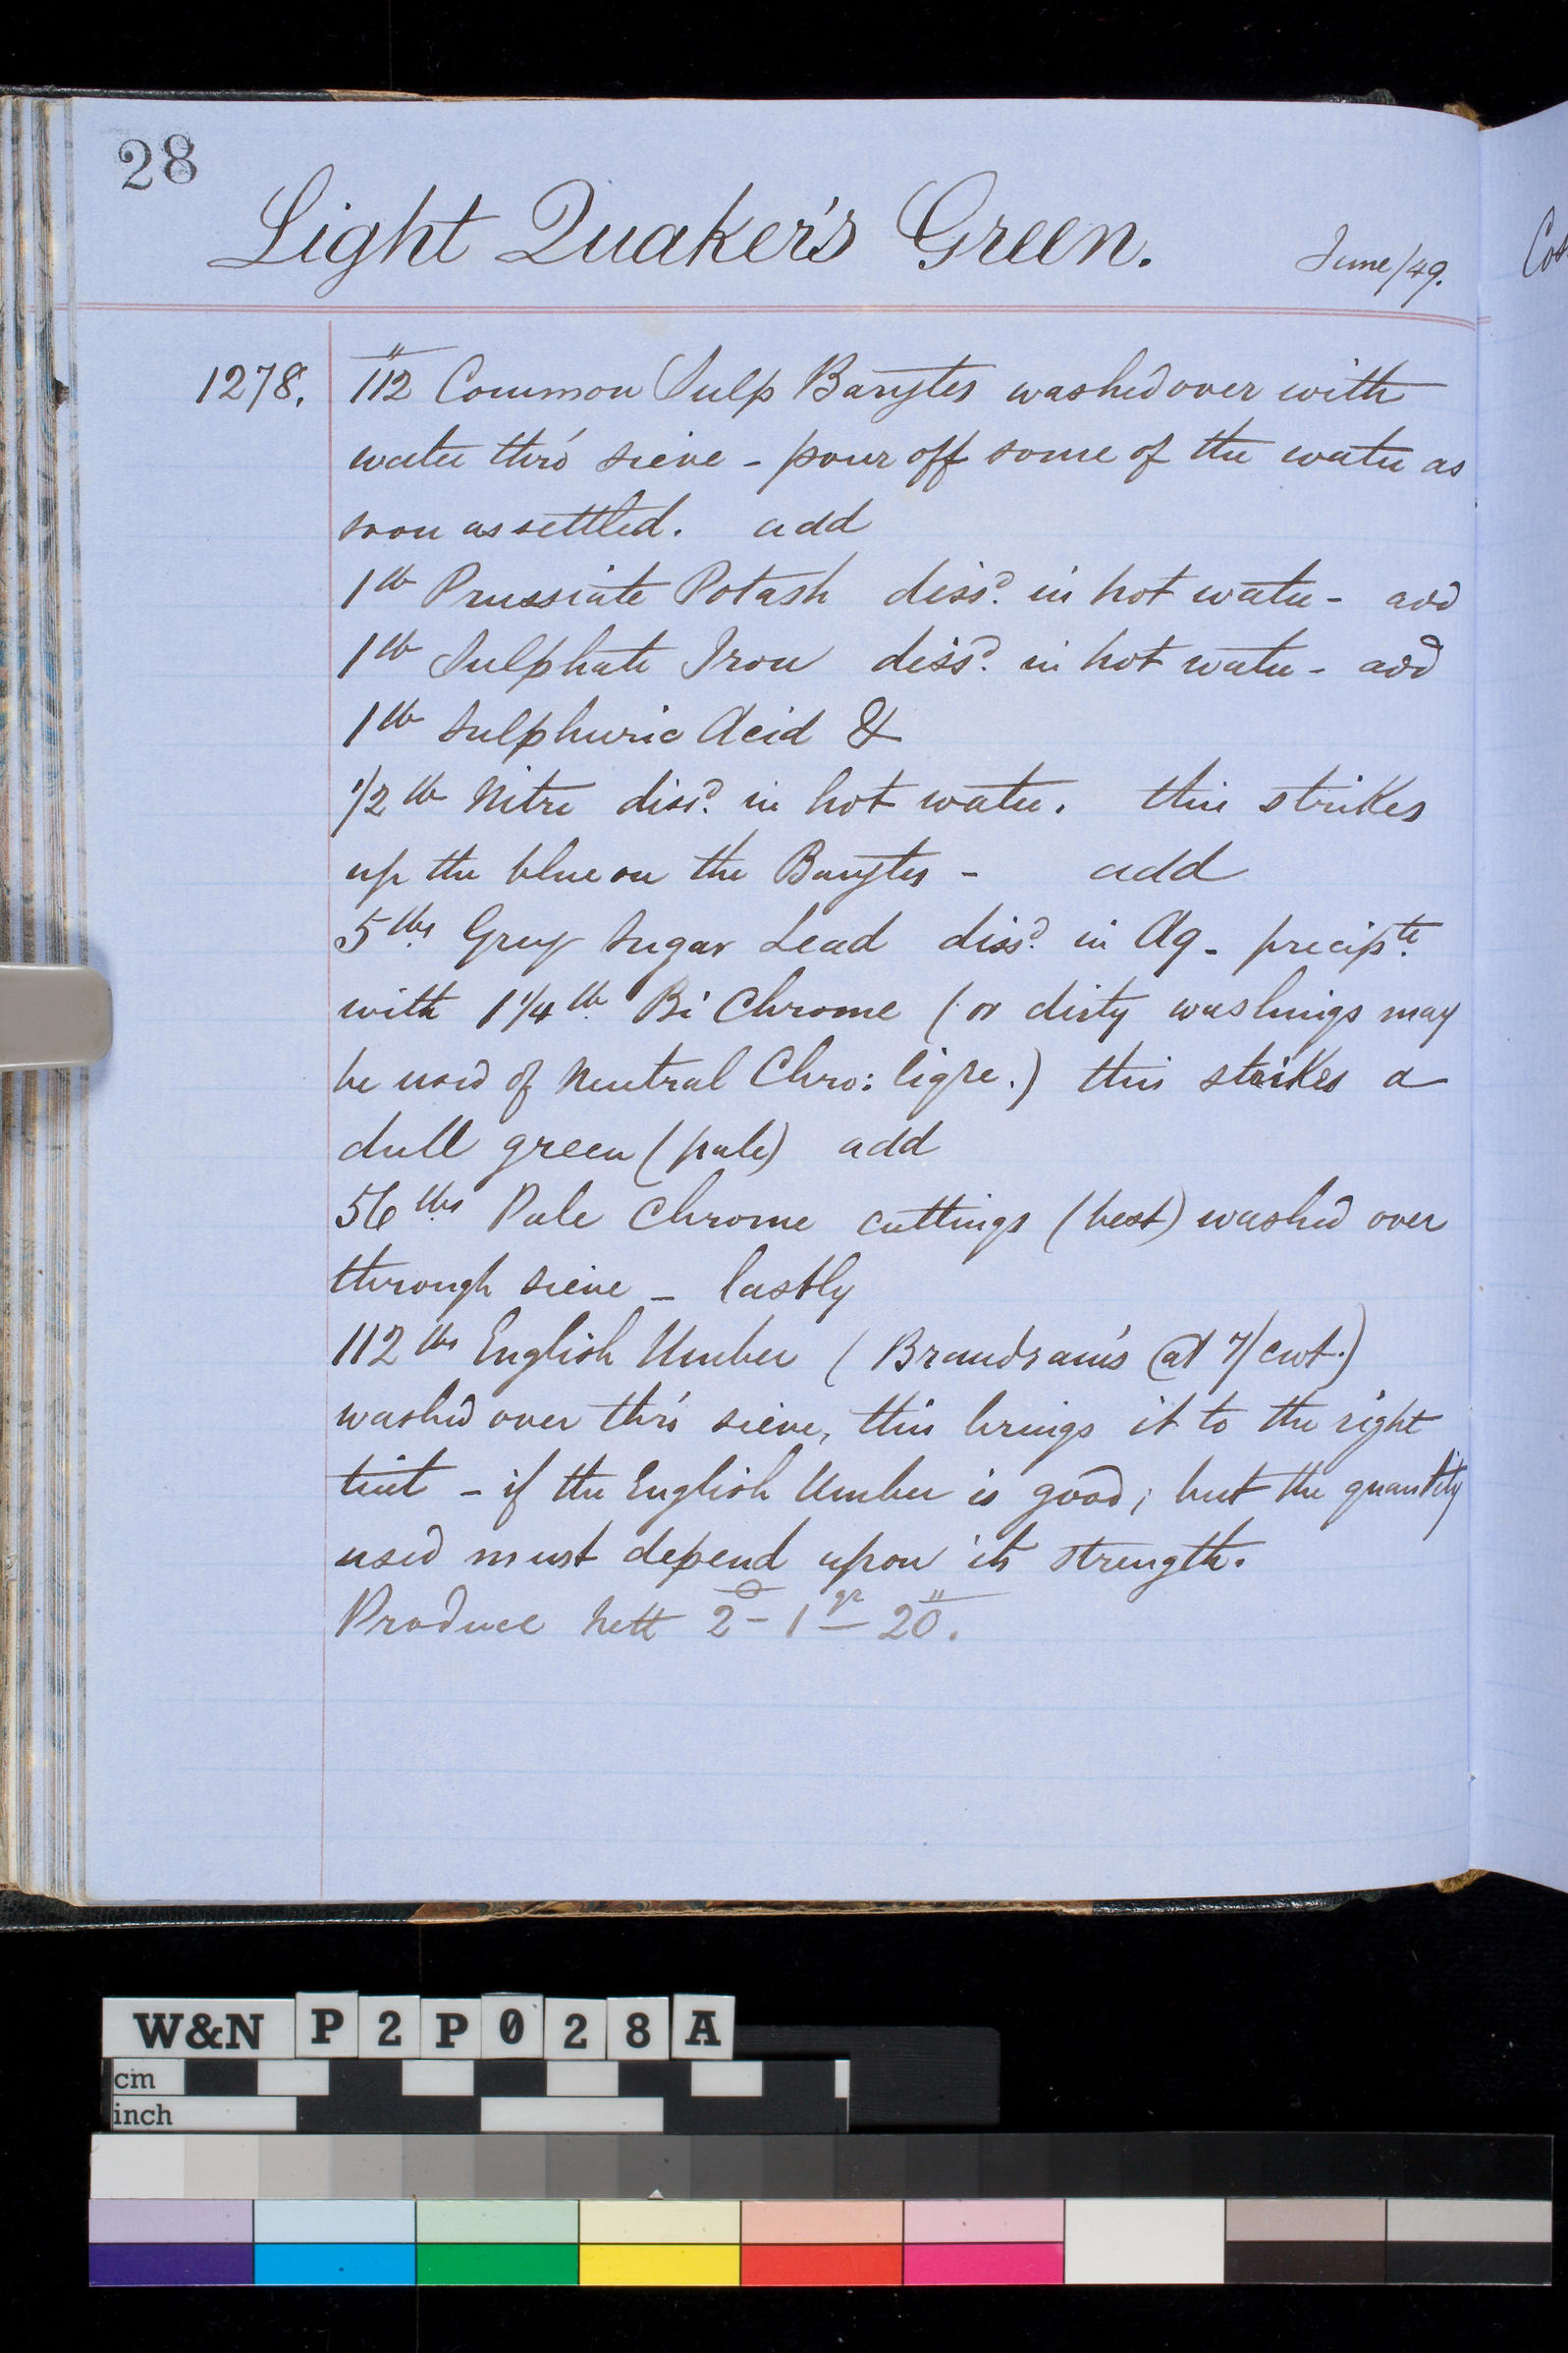 28
Light Quaker's Green. June/49.
1278. 112 Common Sulp Barytes washed over with
water thro' sieve - pour off some of the water as
soon as settled. add
1 lb Prussiate Potash dissd. in hot water - add
1 lb Sulphate Iron dissd. in hot water - add
1 lb Sulphuric Acid &
1/2 lb Nitre dissd. in hot water. this strikes
up the blue on the Barytes - add
5 lbs. Grey Sugar Lead dissd. in Aq - precipte.
with 1 1/4 lb. Bi Chrome (or dirty washings may
be used of Neutral Chro: liqre.) this strikes a
dull green (pale) add
56 lbs. Pale Chrome cuttings (best) washed over
through sieve - lastly
112 lbs English Umber (Brandram's @ 7/ cwt.)
washed over thro' sieve, this brings it to the right
tint - if the English Umber is good; but the quantity
used must depend upon its strength.
Produce nett 2 - 1 qr - 20.
Cos
W&N P2P028A
cm
inch